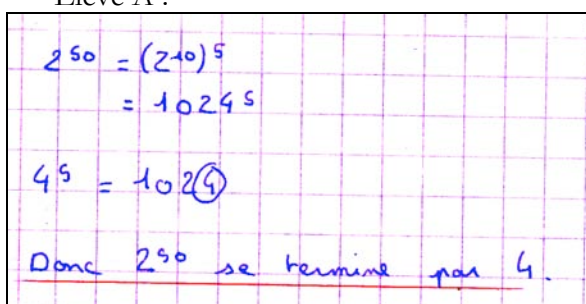 Elève A :
2^50 = (2^10)^5
= 1024^5
4^5 = 1024
Donc 2^50 se termine par 4.